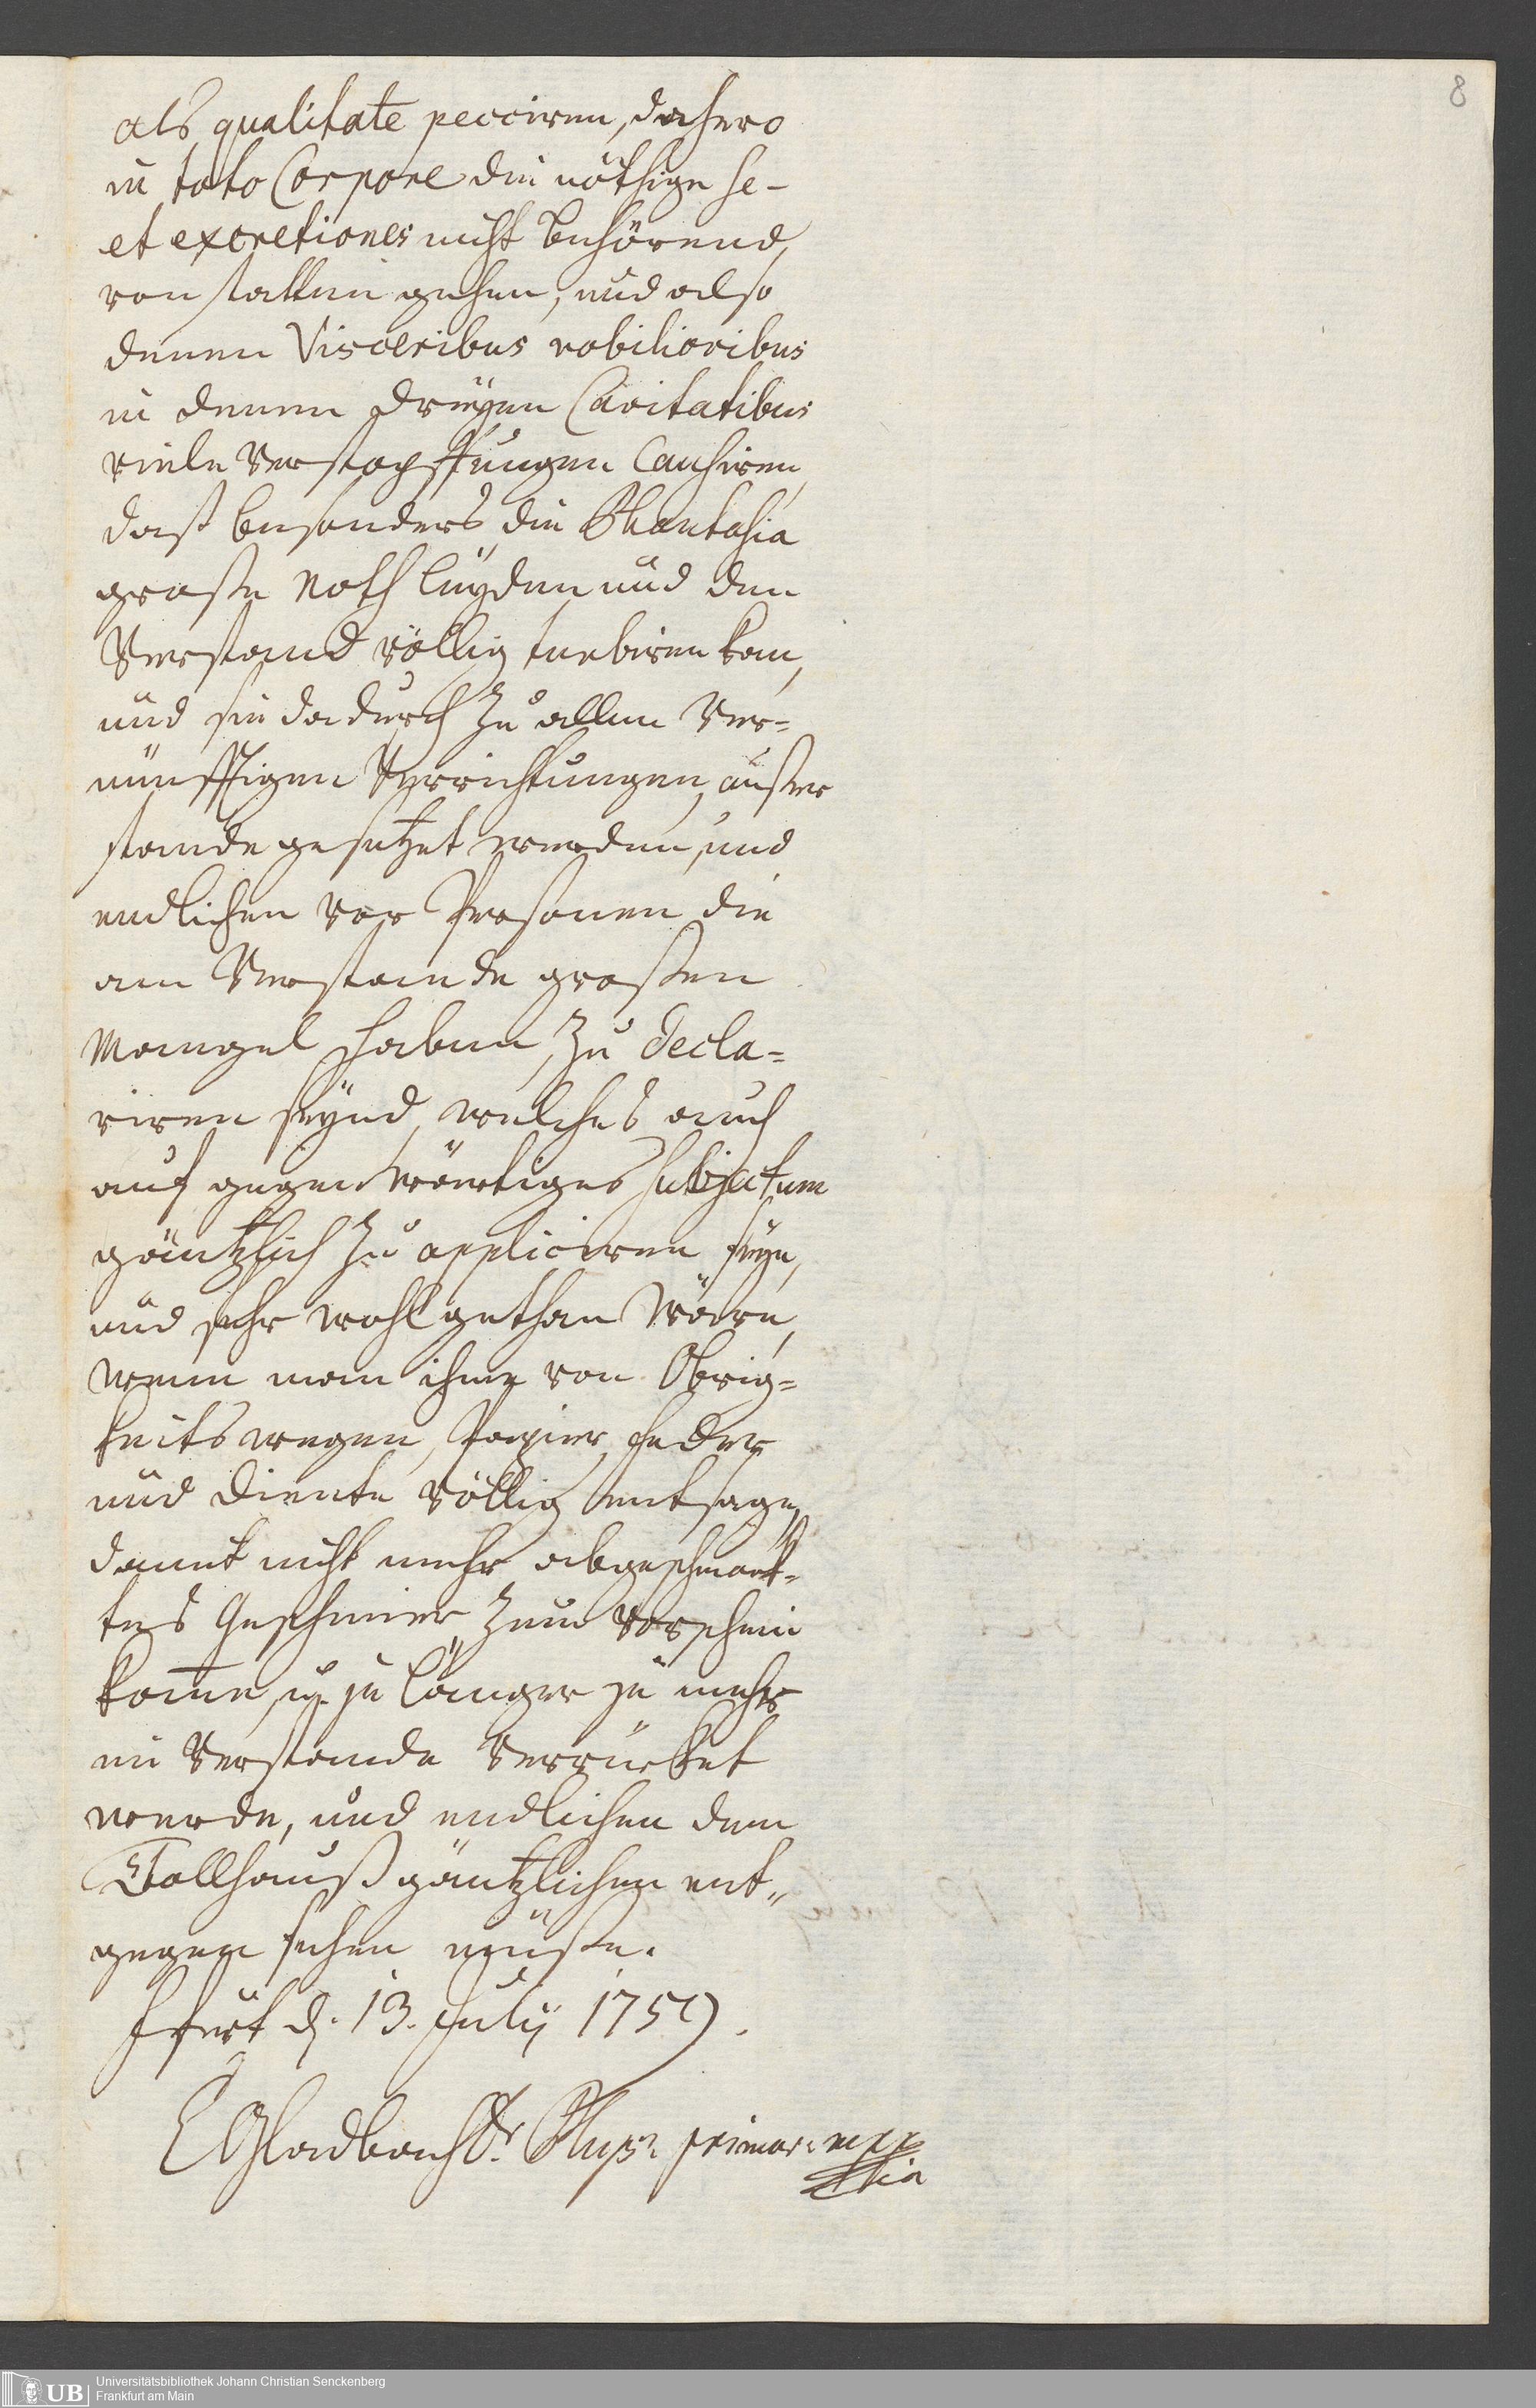 8
als qualitate pecciren, dahero
in toto Corpore die nöthige se-
et excretiones nicht behörend
von statten gehen, und also
denen Visceribus nobilioribus
in denen dreyen Cavitatibus
viele Verstopffungen causiren,
daß besonders die Phantasia
große Noth leyden und den
Verstand völlig turbiren kan,
und sie dadurch zu allen Ver=
nünfftigen Verrichtungen, außer
stande gesetzet werden, und
endlichen vor Personen die
am Verstande großen
Mangel haben, zu decla=
riren seynd, welches auch
auf gegenwärtiges subjectum
gäntzlich zu appliciren seye,
und sehr wohl gethan wäre,
wenn man ihme von Obrig=
keits wegen, Papier, Feder
und Diente völlig entsage,
damit nicht mehr abgeschmack=
tes Geschmier zum Vorschein
kom̄e, u. je länger je mehr
im Verstande Verrücket
werde, und endlichen dem
Tollhauß gäntzlichen ent„
gegen sehen müße.
Ffurt d. 13. July 1759.
E Gladbach Dr. Phys: primar: mpp
ria
UB
Universitätsbibliothek Johann Christian Senckenberg
Frankfurt am Main